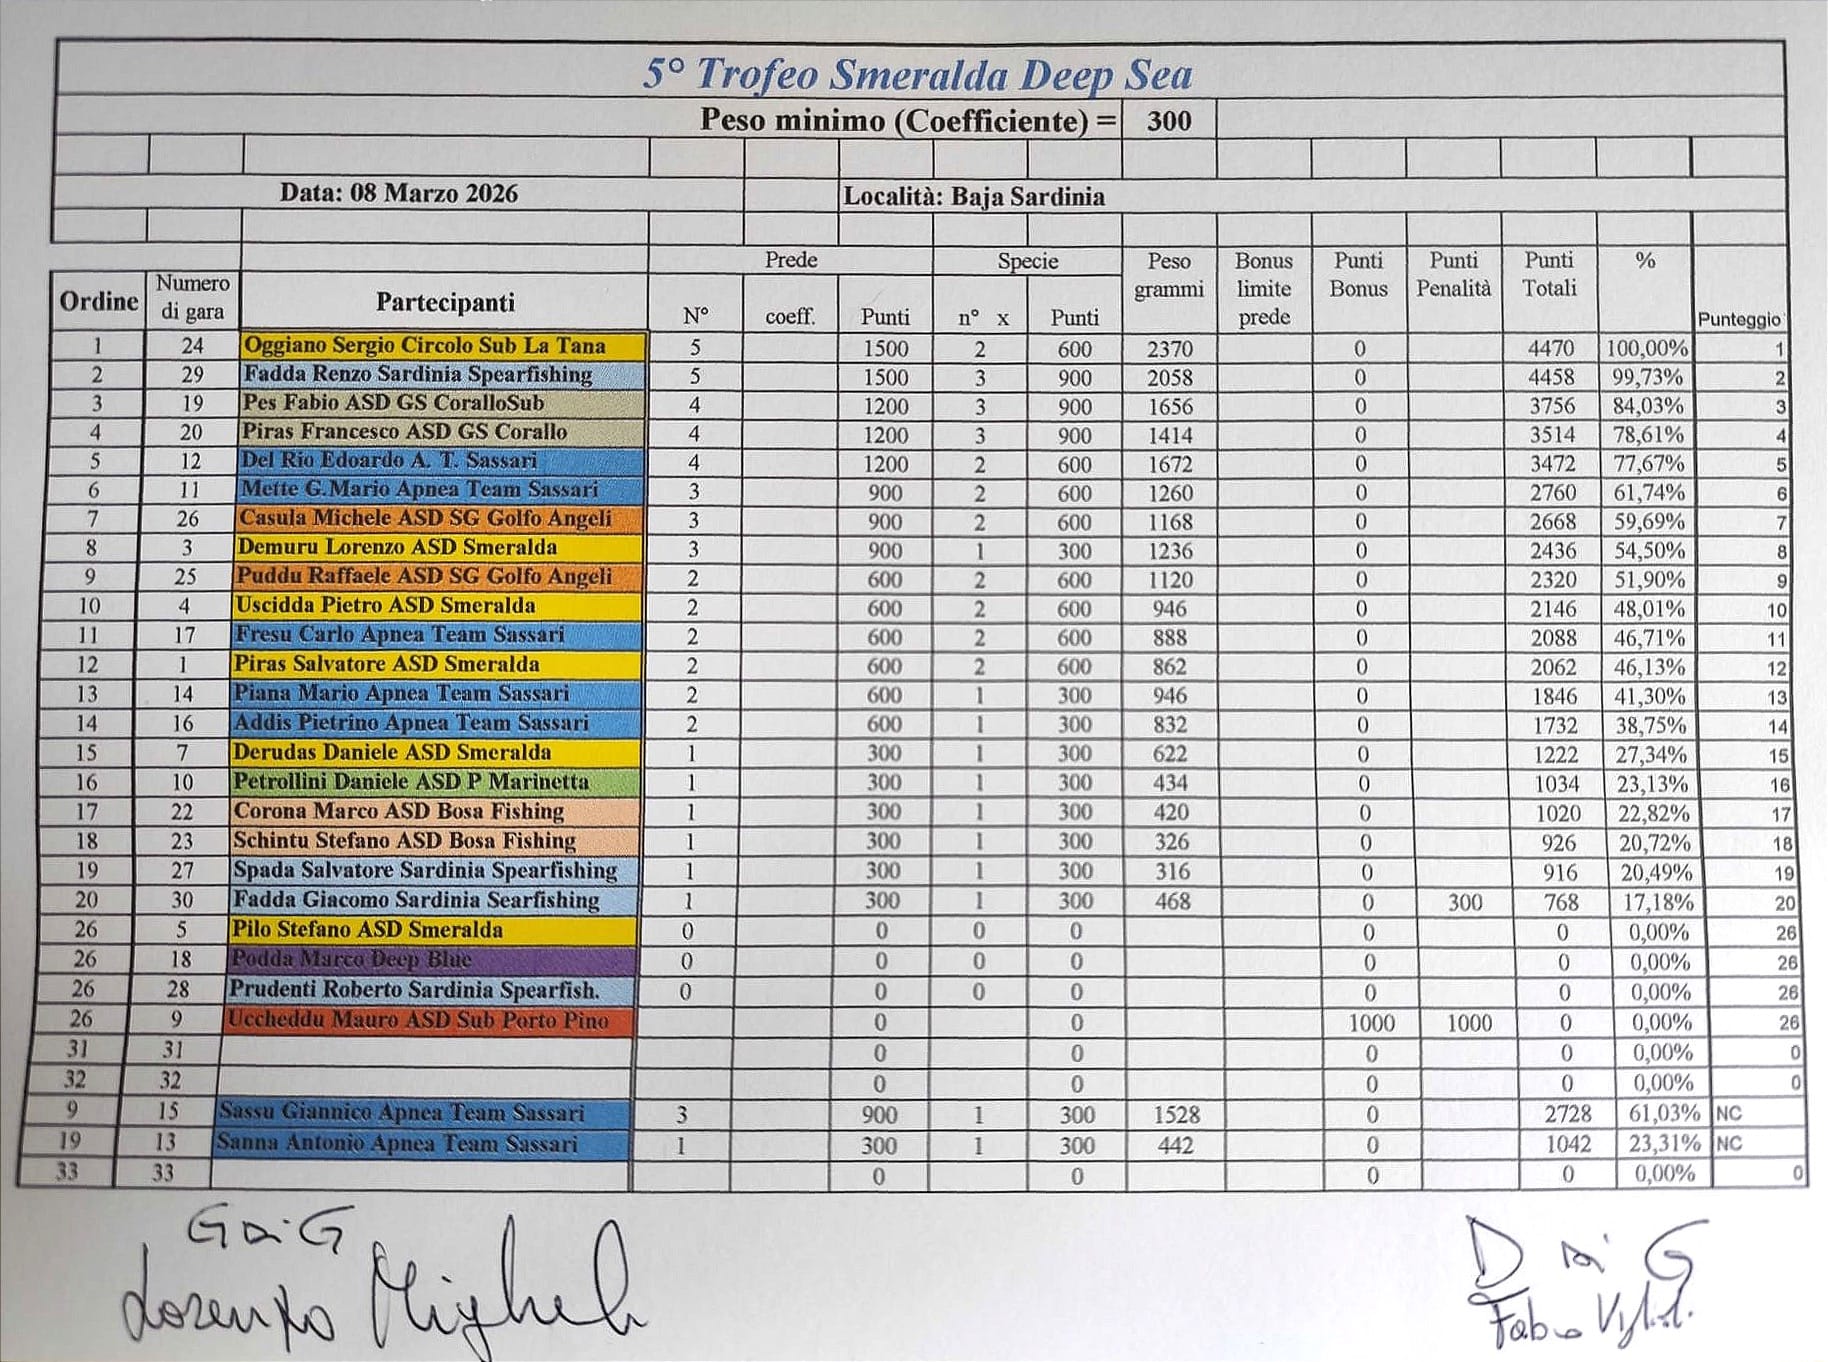 5° Trofeo Smeralda Deep Sea
Peso minimo (Coefficiente) = 300
Data: 08 Marzo 2026 Località: Baja Sardinia
Ordine Numero di gara Partecipanti Prede N° coeff. Punti Specie n° x Punti Peso grammi Bonus limite prede Punti Bonus Punti Penalità Punti Totali % Punteggio
1 24 Oggiano Sergio Circolo Sub La Tana 5 1500 2 600 2370 0 4470 100,00% 1
2 29 Fadda Renzo Sardinia Spearfishing 5 1500 3 900 2058 0 4458 99,73% 2
3 19 Pes Fabio ASD GS CoralloSub 4 1200 3 900 1656 0 3756 84,03% 3
4 20 Piras Francesco ASD GS Corallo 4 1200 3 900 1414 0 3514 78,61% 4
5 12 Del Rio Edoardo A. T. Sassari 4 1200 2 600 1672 0 3472 77,67% 5
6 11 Mette G.Mario Apnea Team Sassari 3 900 2 600 1260 0 2760 61,74% 6
7 26 Casula Michele ASD SG Golfo Angeli 3 900 2 600 1168 0 2668 59,69% 7
8 3 Demuru Lorenzo ASD Smeralda 3 900 1 300 1236 0 2436 54,50% 8
9 25 Puddu Raffaele ASD SG Golfo Angeli 2 600 2 600 1120 0 2320 51,90% 9
10 4 Uscidda Pietro ASD Smeralda 2 600 2 600 946 0 2146 48,01% 10
11 17 Fresu Carlo Apnea Team Sassari 2 600 2 600 888 0 2088 46,71% 11
12 1 Piras Salvatore ASD Smeralda 2 600 2 600 862 0 2062 46,13% 12
13 14 Piana Mario Apnea Team Sassari 2 600 1 300 946 0 1846 41,30% 13
14 16 Addis Pietrino Apnea Team Sassari 2 600 1 300 832 0 1732 38,75% 14
15 7 Derudas Daniele ASD Smeralda 1 300 1 300 622 0 1222 27,34% 15
16 10 Petrollini Daniele ASD P Marinetta 1 300 1 300 434 0 1034 23,13% 16
17 22 Corona Marco ASD Bosa Fishing 1 300 1 300 420 0 1020 22,82% 17
18 23 Schintu Stefano ASD Bosa Fishing 1 300 1 300 326 0 926 20,72% 18
19 27 Spada Salvatore Sardinia Spearfishing 1 300 1 300 316 0 916 20,49% 19
20 30 Fadda Giacomo Sardinia Searfishing 1 300 1 300 468 0 300 768 17,18% 20
26 5 Pilo Stefano ASD Smeralda 0 0 0 0 0 0 0,00% 26
26 18 Podda Marco Deep Blue 0 0 0 0 0 0 0,00% 26
26 28 Prudenti Roberto Sardinia Spearfish. 0 0 0 0 0 0 0,00% 26
26 9 Uccheddu Mauro ASD Sub Porto Pino 0 0 1000 1000 0 0,00% 26
31 31 0 0 0 0 0,00% 0
32 32 0 0 0 0 0,00% 0
9 15 Sassu Giannico Apnea Team Sassari 3 900 1 300 1528 0 2728 61,03% NC
19 13 Sanna Antonio Apnea Team Sassari 1 300 1 300 442 0 1042 23,31% NC
33 33 0 0 0 0 0,00% 0
G di G D di G
Lorenzo Fabio